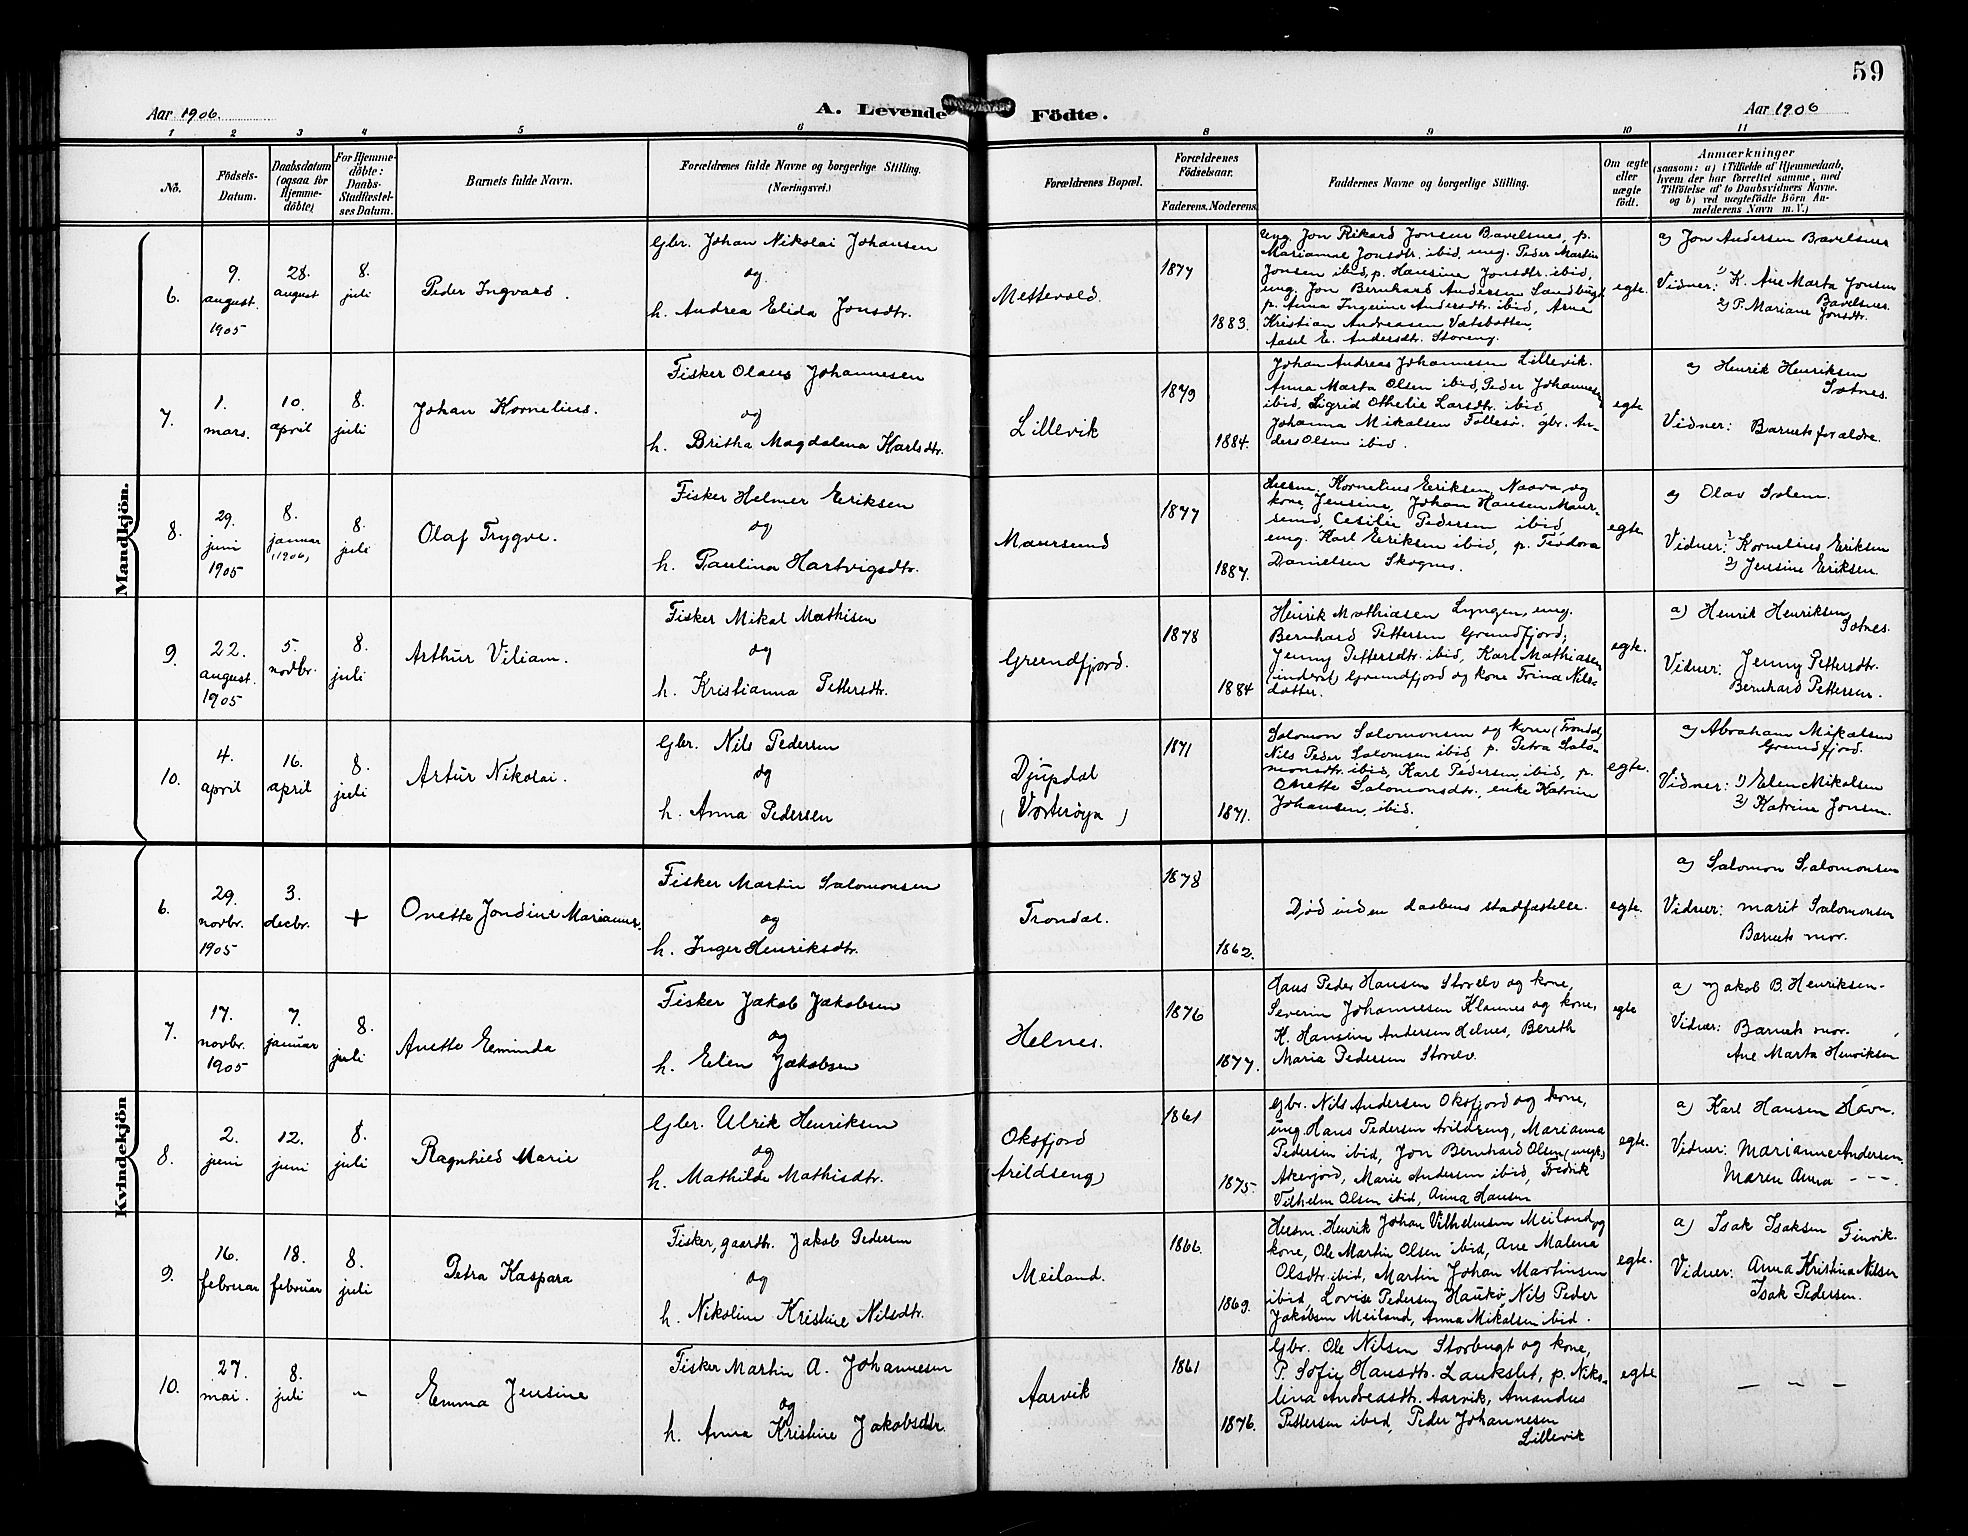 59
Aar 1906.
A. Levende Födte.
Aar 1906
1 2 3 4 5 6 8 9 10 11
No.
Födsels-Datum.
Daabsdatum (ogsaa for Hjemme-döbte)
For Hjemme-döbte: Daabs-Stadfæstel-ses Datum.
Barnets fulde Navn.
Forældrenes fulde Navne og borgerlige Stilling.
(Næringsvei.)
Forældrenes Bopæl.
Forældrenes Födselsaar.
Faderens. Moderens.
Faddernes Navne og borgerlige Stilling.
Om ægte eller uægte födt.
Anmærkninger
(saasom: a) i Tilfælde af Hjemmedaab,
hvem der har forrettet samme, med
Tilföielse af to Daabsvidners Navne.
og b) ved uægtefödte Börn An-
melderens Navn m. V.)
Mandkjön.
6.
9. august. 1905
28. august
8. juli
Peder Ingvard.
Gbr. Johan Nikolai Johansen
og
h. Andrea Elida Jonsdtr.
Mettevold.
1877
1883.
ung. Jon Rikard Jonsen Bavelsnes, p.
Marianne Jonsdtr. ibid, ung. Peder Martin
Jonsen ibid, p. Hansine Jonsdtr. ibid,
ung. Jon Bernhard Andersen Sandbugt
p. Anna Ingerine Andersdtr. ibid, Arne
Kristian Andreasen Vatsbotten,
Aasel E. Andersdtr. Storeng.
egte.
a) Jon Andersen Bavelsnes
Vidner: 1) K. Ane Marta Jonsen
2) P. Mariane Jonsdtr. Bavelsnes.
7.
1. mars.
10. april
8. juli
Johan Kornelius.
Fisker Olaus Johannesen
og
h. Britha Magdalena Karlsdtr.
Lillevik
1879
1884.
Johan Andreas Johannesen Lillevik.
Anna Marta Olsen ibid, Peder Johannesen
ibid, Sigrid Othelie Larsdtr. ibid,
Johanna Mikalsen Follesø. gbr. An-
ders Olsen ibid.
egte
a) Henrik Henriksen
Sotnes.
Vidner: Barnets forældre.
8.
29. juni 1905
8. januar (1906)
8. juli
Olaf Trygve.
Fisker Helmer Eriksen
og
h. Paulina Hartvigsdtr.
Maursund
1877
1887.
Husm. Kornelius Eriksen, Naava, og
kone Jensine, Johan Hansen Maur-
sund, Cesilie Pedersen ibid,
ung. Karl Eriksen ibid, p. Teodora
Danielsen Skognes.
egte
a) Olav Solem.
Vidner: 1) Kornelius Eriksen
2) Jensine Eriksen.
9.
22. august. 1905
5. novbr.
8. juli
Arthur Viliam.
Fisker Mikal Mathisen
og
h. Kristianna Pettersdtr.
Grundfjord.
1878
1884
Henrik Mathiasen Lyngen, ung.
Bernhard Pettersen Grundfjord,
Jenny Pettersdtr. ibid, Karl Mathiasen
Grundfjord og kone Trina Nils-
datter.
egte.
a) Henrik Henriksen,
Sotnes.
Vidner: Jenny Pettersdtr.
Bernhard Pettersen.
10.
4. april
16. april
8. juli
Artur Nikolai.
Gbr. Nils Pedersen
og
h. Anna Pedersen
Djupdal
(Vorterøya)
1871
1871.
Salomon Salomonsen og kone (Trondal)
Nils Peder Salomsen ibid, p. Petra Salo-
monsdtr. ibid, Karl Pedersen ibid, p.
Onette Salomonsdtr., enke Katrin
Johansen, ibid.
egte.
a) Abraham Mikalsen
Grundfjord.
Vidner: 1) Elen Mikalsen
2) Katrine Jonsen.
Kvindekjön
6.
29. novbr. 1905
3. decbr.
+
Onette Jondine Marianne.
Fisker Martin Salomonsen
og
h. Inger Henriksdtr.
Trondal.
1878
1862.
Død inden daabens stadfæstelse.
egte.
a) Salomon Salomonsen
Vidner: Marit Salomonsen
Barnets mor.
7.
17. novbr. 1905
7. januar
8. juli
Anette Erminda
Fisker Jakob Jakobsen
og
h. Elen Jakobsen
Helnes.
1876
1877.
Hans Peder Hansen Storelv og kone,
Severin Johannesen Klauves og kone,
K. Hansine Andersen Helnes, Bereth
Maria Pedersen Storelv.
egte
a) Jakob B. Henriksen.
Vidner: Barnets mor.
Ane Marta Henriksen
8.
2. juni
12. juni
8. juli
Ragnhild Marie
Gbr. Ulrik Henriksen
og
h. Mathilde Mathisdtr.
Oksfjord
Arildseng)
1861
1875.
Gbr. Nils Andersen Oksfjord og kone,
ung. Hans Pedersen Arildseng, Marianna
Pedersen ibid, Jon Bernhard Olsen (ungk)
Akerfjord, Marie Andersen ibid, Fredrik
Vilhelm Olsen ibid, Anna Hansen
egte.
a) Karl Hansen Havn.
Vidner: Marianne Andersen.
Maren Anna - - -.
9.
16. februar
18. februar
8. juli
Petra Kaspara
Fisker, gaardbr. Jakob Pedersen
og
h. Nikoline Kristine Nilsdtr.
Meiland.
1866.
1869.
Husm. Henrik Johan Vilhelmsen Meiland og
kone, Ole Martin Olsen ibid, Ane Malena
Olsdtr. ibid, Martin Johan Martinsen
ibid, Lovise Pedersen Haukø, Nils Peder
Jakobsen Meiland, Anna Mikalsen ibid.
egte.
a) Isak Isaksen Finvik.
Vidner: Anna Kristina Nilsen
Isak Pedersen.
10.
27. mai.
8. juli
-
Emma Jensine
Fisker Martin A. Johannesen
og
h. Anna Kristine Jakobsdtr.
Aarvik
1861
1876.
Gbr. Ole Nilsen Storbugt og kone,
P. Sofie Hansdtr. Laukslet, p. Niko-
lina Andreasdtr. Aarvik, Amandus
Pettersen ibid, Peder Johannesen
Lillevik
egte
- - -